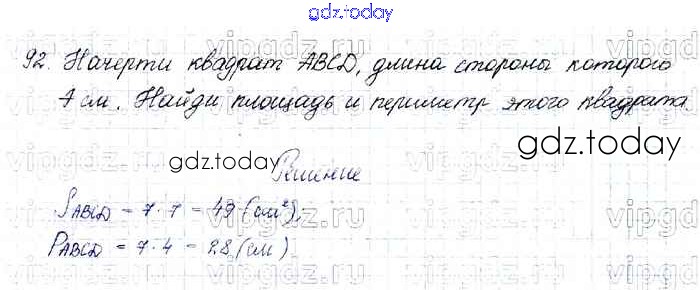 gdz.today
92. Начерти квадрат ABCD, длина стороны которого
7 см. Найди площадь и периметр этого квадрата
gdz.today gdz.today
Решение
S ABCD = 7 · 7 = 49 (см²),
P ABCD = 7 · 4 = 28 (см)